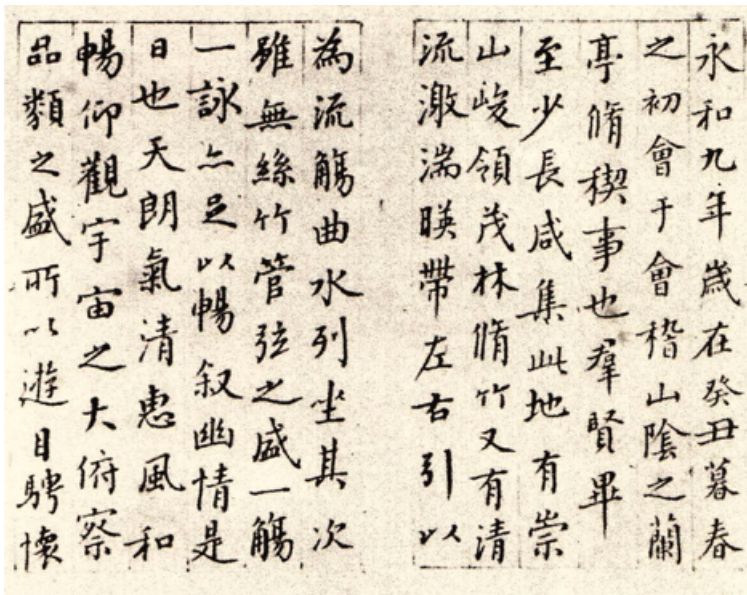 永和九年歲在癸丑暮春
之初會于會稽山陰之蘭
亭脩稧事也羣賢畢
至少長咸集此地有崇
山峻領茂林脩竹又有清
流激湍暎帶左右引以
為流觴曲水列坐其次
雖無絲竹管弦之盛一觴
一詠亦足以暢叙幽情是
日也天朗氣清惠風和
暢仰觀宇宙之大俯察
品類之盛所以遊目騁懷